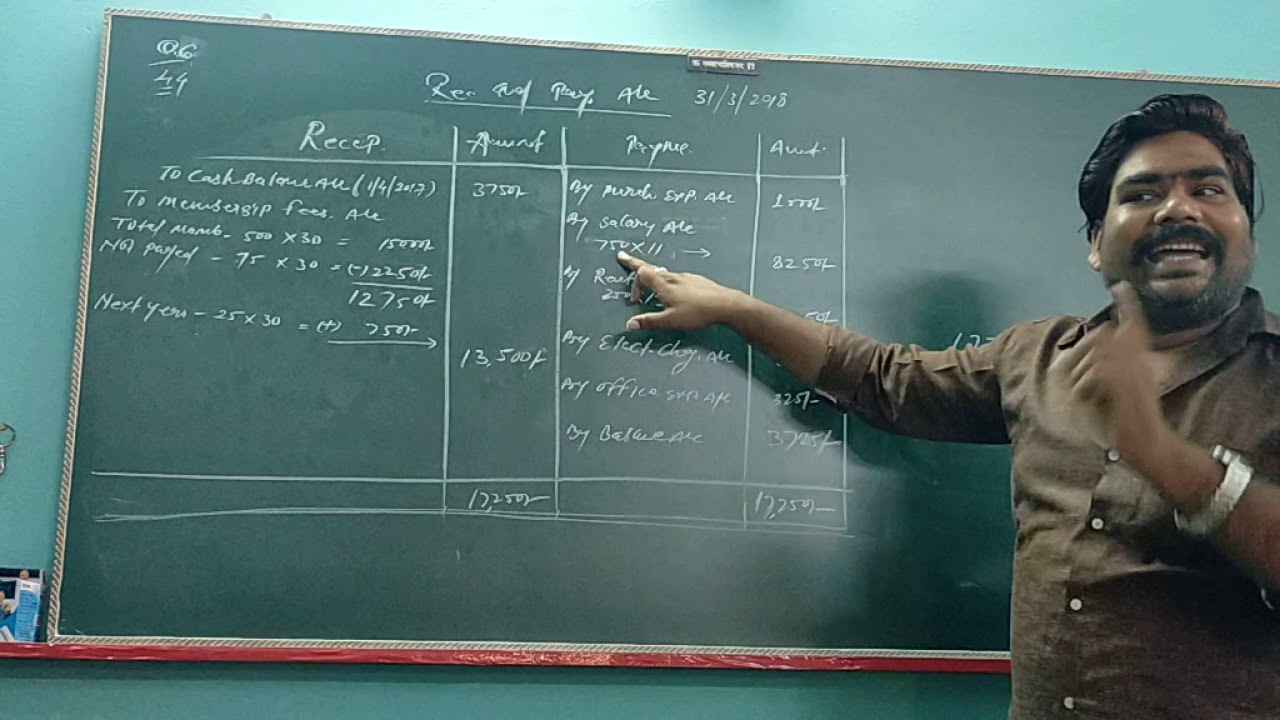 Q.6
44
Rec. and Pay. A/c 31/3/2018
Recep. Amount Payme. Amt.
To Cash Balance A/c (1/4/2017) 3750/- By purch Exp. A/c 1000/-
To Membership fees. A/c By Salary A/c
Total Memb - 500 × 30 = 15000/- 750×11 → 8250/-
Not payed - 75 × 30 = (-) 2250/- By Rent
12750/- 250 50/-
Next year - 25 × 30 = (+) 750/- →
13,500/- By Elect. Chg. A/c
By office Exp A/c 325/-
By Balance A/c 3725/-
17,250/- 17,250/-